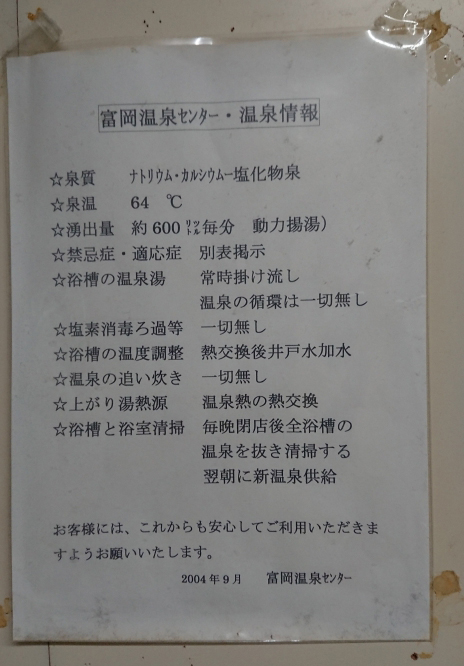 富岡温泉ｾﾝﾀｰ・温泉情報
☆泉質 ﾅﾄﾘｳﾑ・ｶﾙｼｳﾑ─塩化物泉
☆泉温 64 ℃
☆湧出量 約600㍑毎分 動力揚湯)
☆禁忌症・適応症 別表掲示
☆浴槽の温泉湯 常時掛け流し
温泉の循環は一切無し
☆塩素消毒ろ過等 一切無し
☆浴槽の温度調整 熱交換後井戸水加水
☆温泉の追い炊き 一切無し
☆上がり湯熱源 温泉熱の熱交換
☆浴槽と浴室清掃 毎晩閉店後全浴槽の
温泉を抜き清掃する
翌朝に新温泉供給
お客様には、これからも安心してご利用いただきま
すようお願いいたします。
2004年9月 富岡温泉ｾﾝﾀｰ